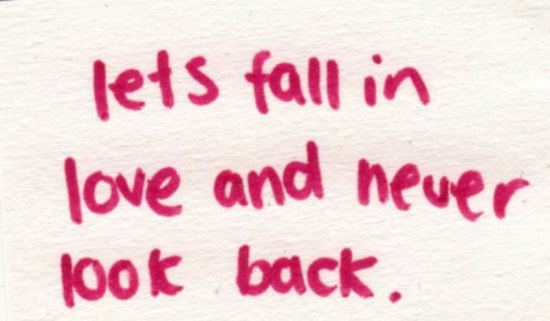 lets fall in
love and never
look back.